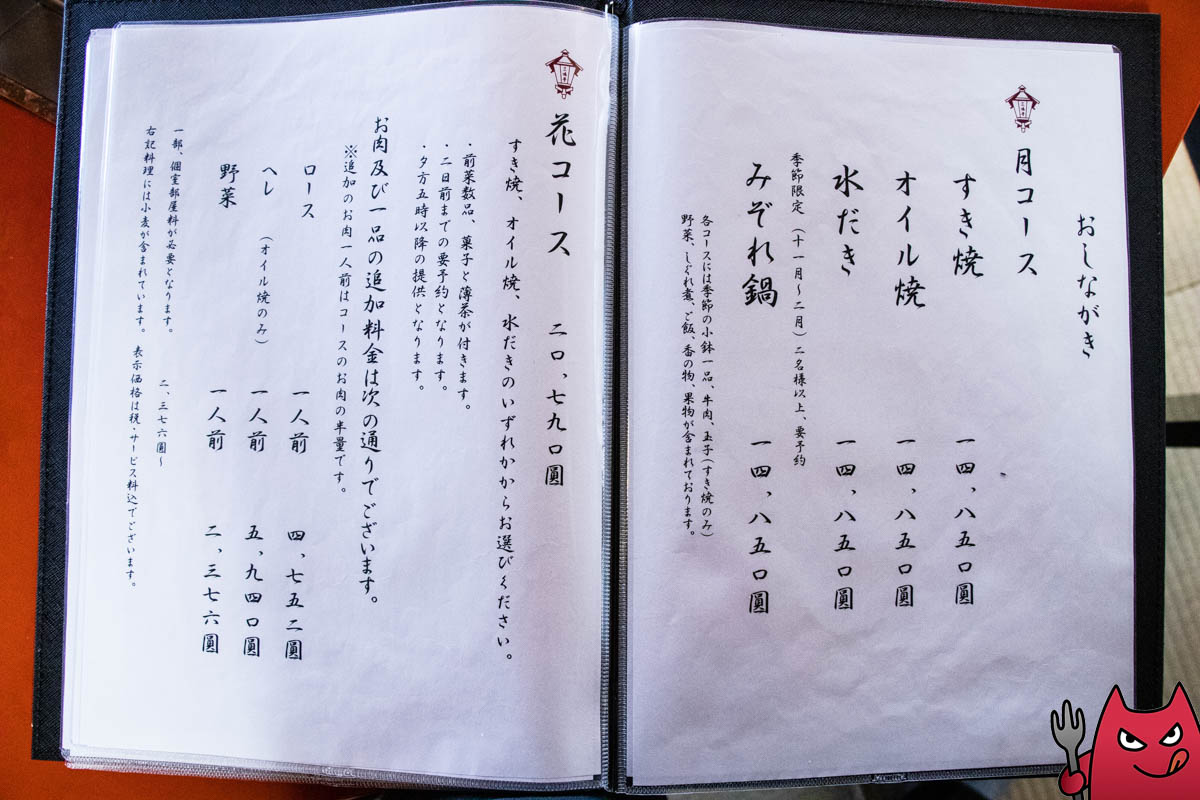 おしながき
月コース
すき焼 一四、八五〇圓
オイル焼 一四、八五〇圓
水だき 一四、八五〇圓
季節限定（十一月〜二月）二名様以上、要予約
みぞれ鍋 一四、八五〇圓
各コースには季節の小鉢一品、牛肉、玉子(すき焼のみ)
野菜、しぐれ煮、ご飯、香の物、果物が含まれております。
花コース 二〇、七九〇圓
すき焼、オイル焼、水だきのいずれかからお選びください。
・前菜数品、菓子と薄茶が付きます。
・二日前までの要予約となります。
・夕方五時以降の提供となります。
お肉及び一品の追加料金は次の通りでございます。
※追加のお肉一人前はコースのお肉の半量です。
ロース 一人前 四、七五二圓
ヘレ （オイル焼のみ） 一人前 五、九四〇圓
野菜 一人前 二、三七六圓
一部、個室部屋料が必要となります。 二、三七六圓〜
右記料理には小麦が含まれています。 表示価格は税・サービス料込でございます。